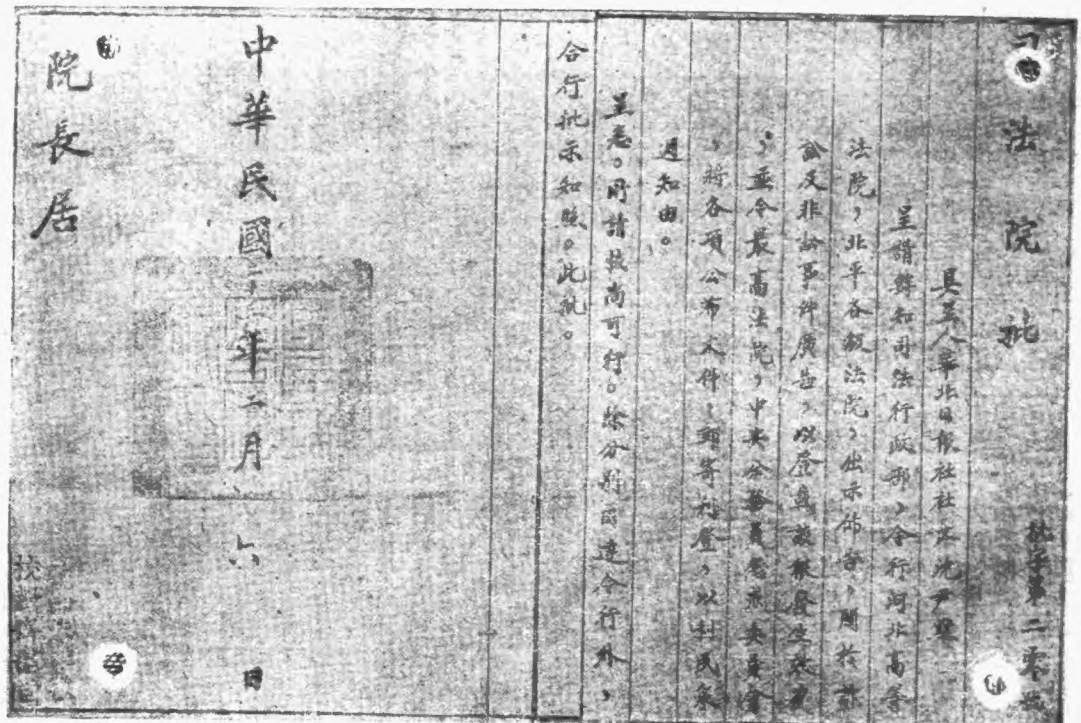 司法院批
批字第二零號
具呈人華北日報社社長沈尹
呈請轉知司法行政部,令行河北高等
法院,北平各級法院,出示佈告,關於訴
訟及非訟事件廣告,以登載該報發生效力
,並令最高法院,中央公務員懲戒委員會
,將各項公布文件,郵寄刊登,以利民眾
週知由。
呈悉。所請核尚可行。除分別函達令行外,
合行批示知照。此批。
中華民國二十 年二月 六 日
院長居